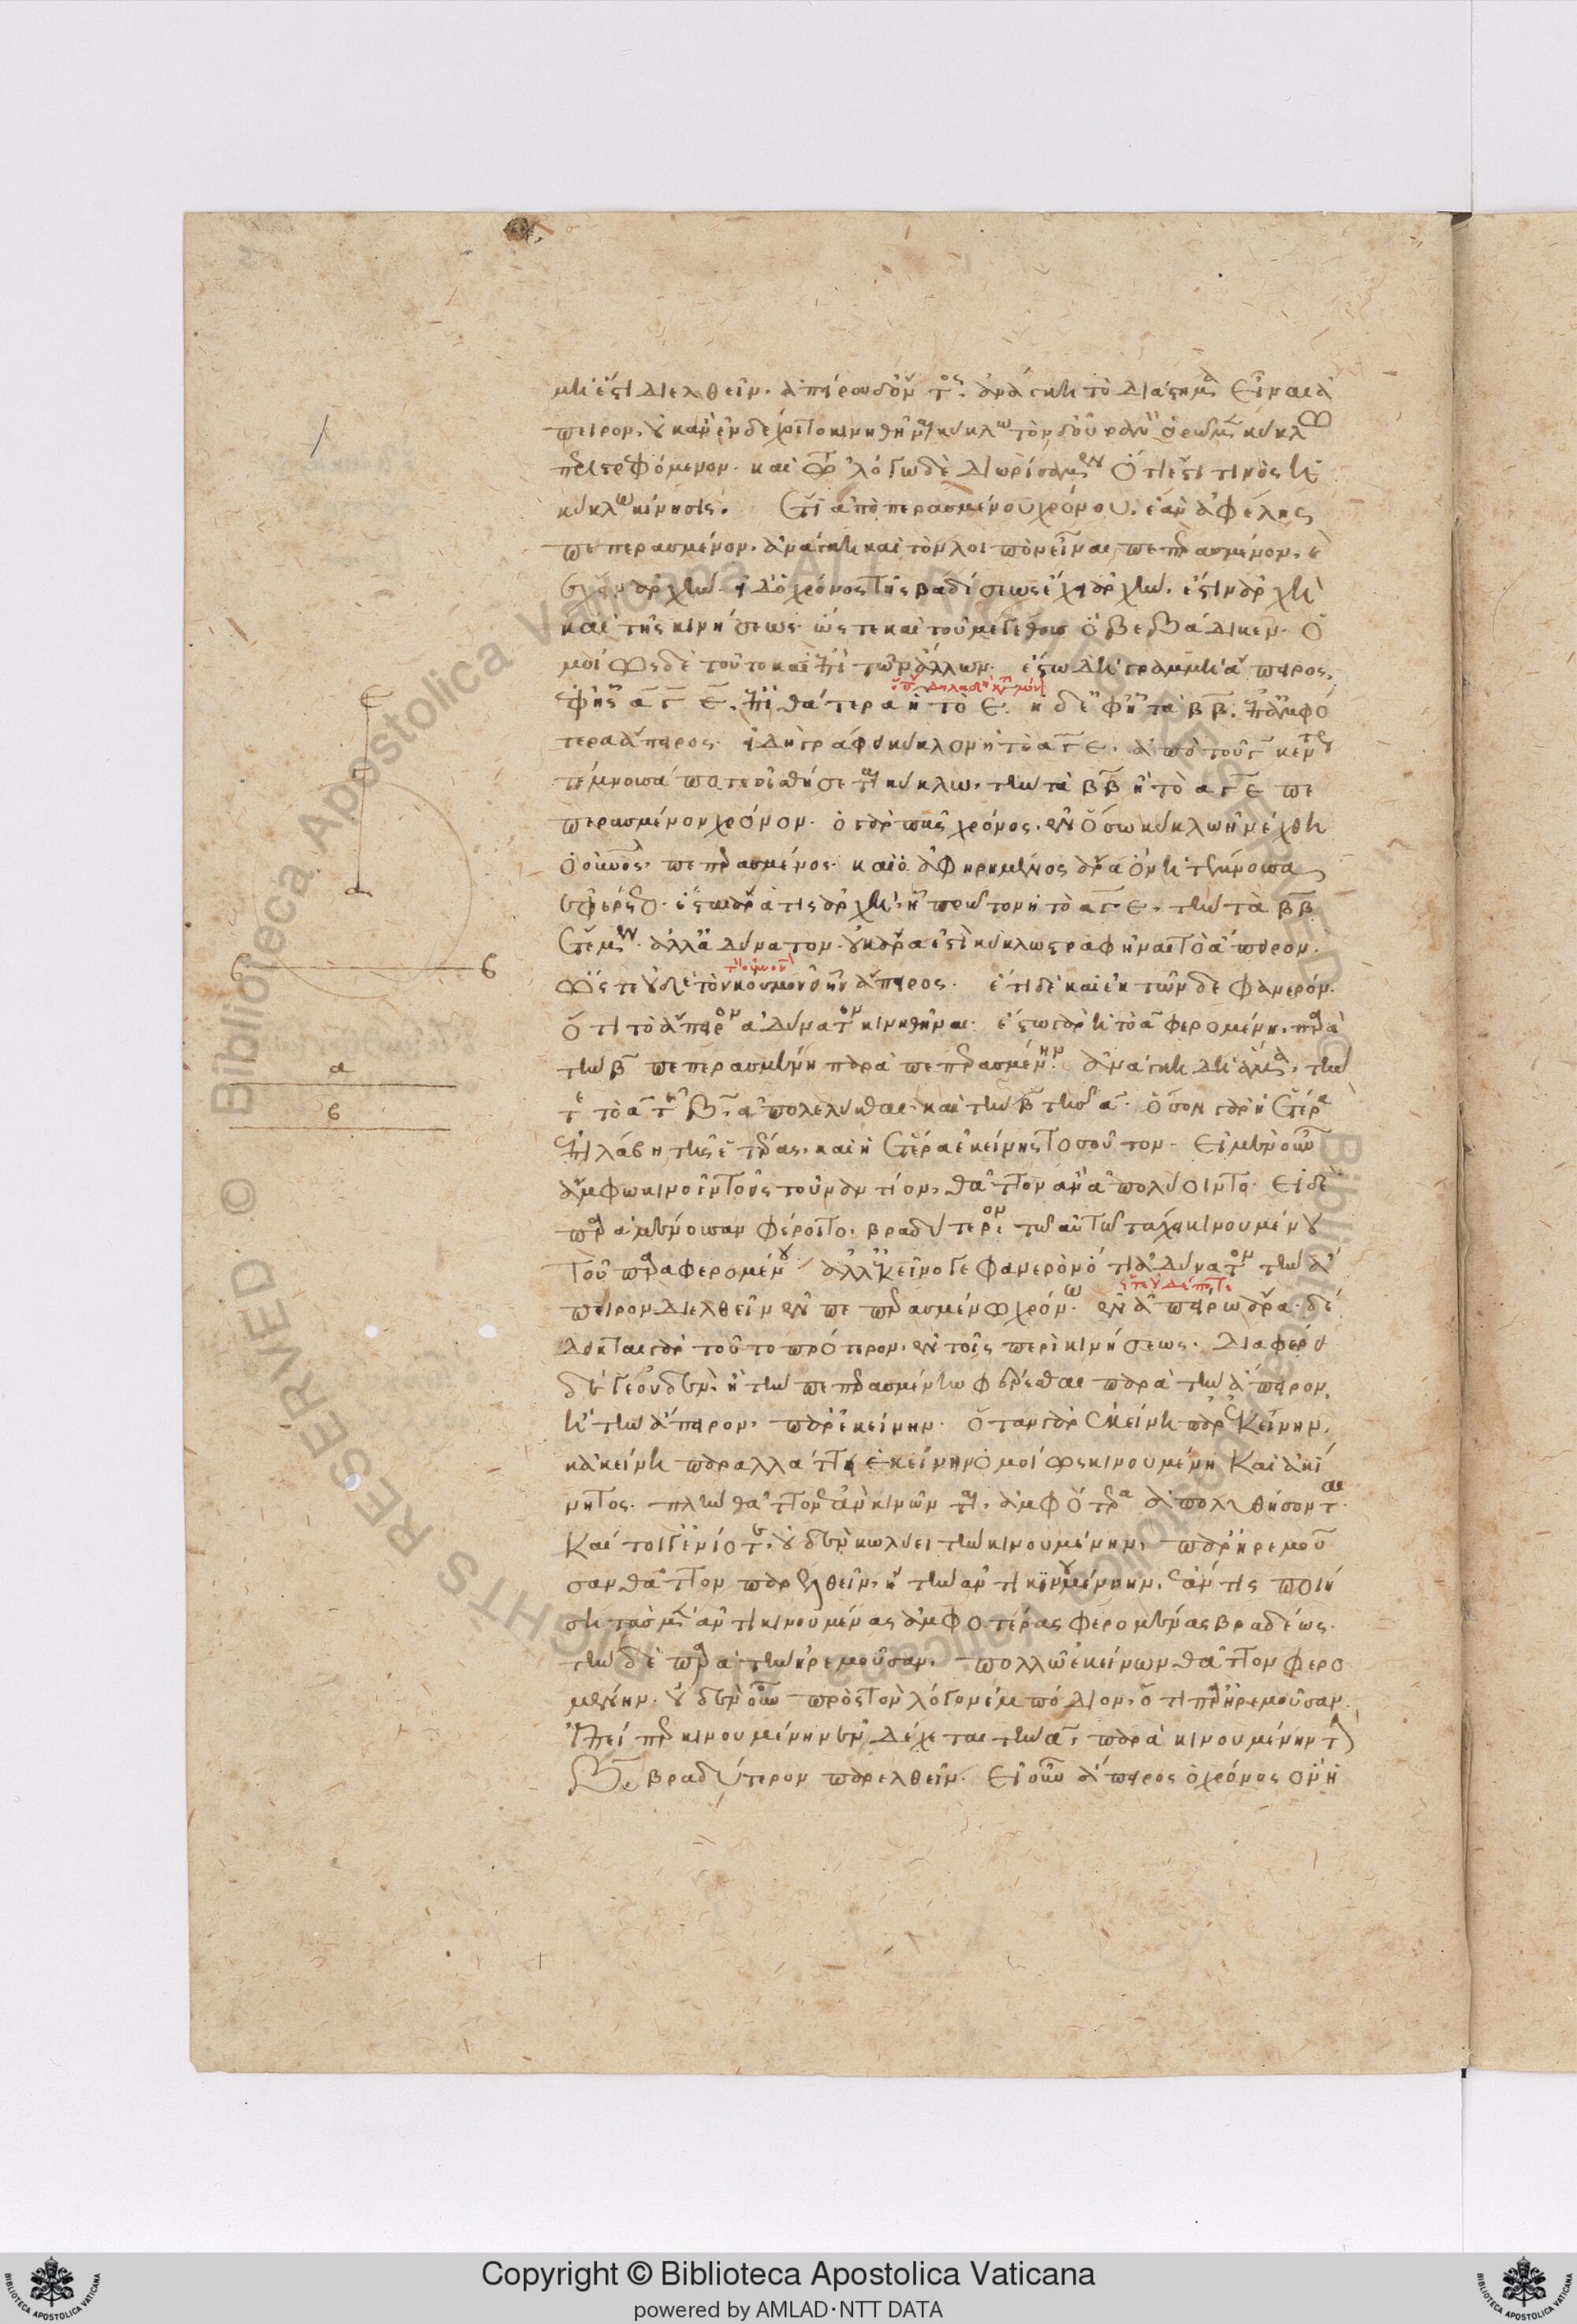 μὴ ἔστι διελθεῖν. ἀπείρου δ' ὄντος, ἀνάγκη τὸ διάστημα εἶναι ἄ
πειρον. οὐκ ἂν ἐνδέχοιτο κινηθῆναι κύκλω τὸν δ' οὐρανὸν ὁρῶμεν κύκλω
περιστρεφόμενον. καὶ τῷ λόγω δὲ διωρίσαμεν ὅτι ἐστί τινος ἡ
κύκλω κίνησις. Ἔτι ἀπὸ πεπερασμένου χρόνου. ἐὰν ἀφέλης
πεπερασμένον. ἀνάγκη καὶ τὸν λοιπὸν εἶναι πεπερασμένον. καὶ
ἔχειν ἀρχήν. εἰ δ' ὁ χρόνος τῆς βαδίσεως ἔχει ἀρχήν. ἔστιν ἀρχὴ
καὶ τῆς κινήσεως. ὥστε καὶ τοῦ μεγέθους ὃ βεβάδικεν. ὁ
μοίως δὲ τοῦτο καὶ ἐπὶ τῶν ἄλλων. ἔστω δὴ γραμμὴ ἄπειρος.
ἐφ' ἧς α γ ε. ἐπὶ θάτερα ἡ τὸ ε. ἡ δὲ ἐφ' ἧ τὰ β β. ἐπ' ἀμφό
τερα ἄπειρος. εἰ δὴ γράψει κύκλον ἡ τὸ α γ ε. ἀπὸ τοῦ γ κέντρου
τέμνουσά ποτε οἰσθήσεται κύκλω. τὴν τὰ β β ἡ τὸ α γ ε πε
περασμένον χρόνον. ὁ γὰρ πᾶς χρόνος. ἐν ὅσω κύκλω ἠνέχθη
ὁ οὐρανός. πεπερασμένος. καὶ ὁ ἀφηρημένος ἄρα ὃν ἡ τέμνουσα
ἐφέρετο. ἔσται ἄρα τις ἀρχή. ἧ πρῶτον ἡ τὸ α γ ε. τὴν τὰ β β
ἔτεμεν. ἀλλ' ἀδύνατον. οὐκ ἄρα ἐστὶ κύκλω στραφῆναι τὸ ἄπειρον.
ὥστε οὐδὲ τὸν κόσμον εἰ ἦν ἄπειρος. ἔτι δὲ καὶ ἐκ τῶνδε φανερόν.
ὅτι τὸ ἄπειρον ἀδύνατον κινηθῆναι. ἔστω γὰρ ἡ τὸ α φερομένη. παρὰ
τὴν β πεπερασμένη παρὰ πεπερασμένην. ἀνάγκη δὴ ἅμα. τήν
τε τὸ α τῆς β. ἀπολελύσθαι. καὶ τὴν β τῆς α. ὅσον γὰρ ἡ ἑτέρα
ἐπιλάβη τῆς ἑτέρας. καὶ ἡ ἑτέρα ἐκείνης τοσοῦτον. εἰ μὲν οὖν
ἄμφω κινοῖντο εἰς τοὐναντίον. θᾶττον ἂν ἀπολύοιντο. εἰ δὲ
παρὰ μένουσαν φέροιτο. βραδύτερον. τῷ αὐτῷ τάχει κινουμένου
τοῦ παραφερομένου. ἀλλ' ἐκεῖνό γε φανερὸν ὅτι ἀδύνατον τὴν ἄ
πειρον διελθεῖν ἐν πεπερασμένω χρόνω. ἐν ἀπείρω ἄρα. δέ
δεικται γὰρ τοῦτο πρότερον. ἐν τοῖς περὶ κινήσεως. διαφέρει
δέ γε οὐδὲν. ἢ τὴν πεπερασμένην φέρεσθαι παρὰ τὴν ἄπειρον.
ἢ τὴν ἄπειρον. παρ' ἐκείνην. ὅταν γὰρ ἐκείνη παρ' ἐκείνην.
κἀκείνη παραλλάττει ἐκείνην ὁμοίως κινουμένη καὶ ἀκί
νητος. πλὴν θᾶττον ἐὰν κινῶνται. ἀμφότεραι ἀπολυθήσονται.
καίτοι γ' ἐνίοτε. οὐδὲν κωλύει τὴν κινουμένην. παρ' ἠρεμοῦ
σαν θᾶττον παρελθεῖν. ἢ τὴν ἀντικινουμένην. ἐάν τις ποιή
ση τὰς μὲν ἀντικινουμένας ἀμφοτέρας φερομένας βραδέως.
τὴν δὲ παρὰ τὴν ἠρεμοῦσαν. πολλῶ ἐκείνων θᾶττον φερο
μένην. οὐδὲν οὖν πρὸς τὸν λόγον ἐμπόδιον. ὅτι παρ' ἠρεμοῦσαν.
ἐπεί περ κινουμένην ἐνδέχεται τὴν α. παρὰ κινουμένην τὴν
β. βραδύτερον παρελθεῖν. εἰ οὖν ἄπειρος ὁ χρόνος ὃν ἡ
ε
γ
α
β β
α
β
Copyright © Biblioteca Apostolica Vaticana
powered by AMLAD·NTT DATA